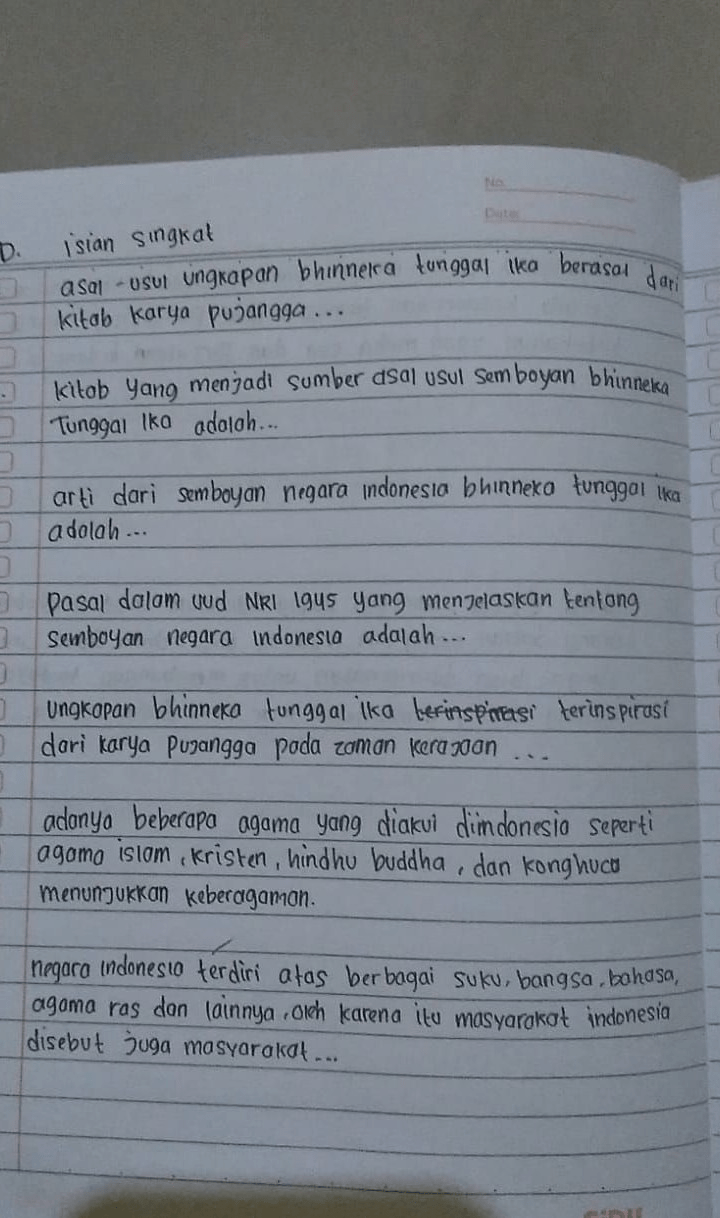 No
Date
D. isian singkat
asal-usul ungkapan bhinneka tunggal ika berasal dari
kitab karya pujangga...
kitab yang menjadi sumber asal usul semboyan bhinneka
Tunggal Ika adalah...
arti dari semboyan negara indonesia bhinneka tunggal ika
adalah...
pasal dalam uud NRI 1945 yang menjelaskan tentang
semboyan negara indonesia adalah...
Ungkapan bhinneka tunggal ika terinspirasi
dari karya pujangga pada zaman kerajaan ...
adanya beberapa agama yang diakui diindonesia seperti
agama islam, kristen, hindhu buddha, dan konghucu
menunjukkan keberagaman.
negara indonesia terdiri atas berbagai suku, bangsa, bahasa,
agama ras dan lainnya, oleh karena itu masyarakat indonesia
disebut juga masyarakat...